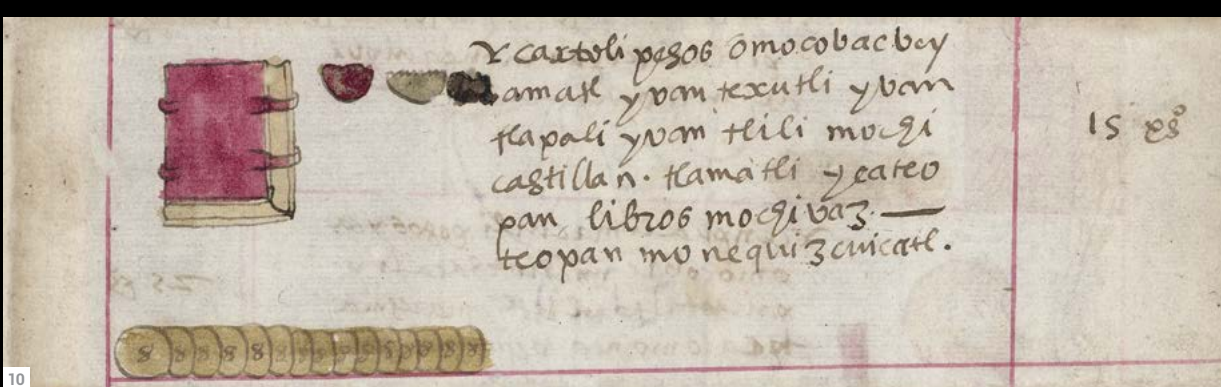 Ycaxtoli pesos omocobac vey
amatl yvan texutli yvan
tlapali yvan tlili mochi
castillan. tlamatli ycateo
pan libros mochivaz.
teopan monequiz cuicatl.
15 ps°
8 8 8 8 8 8 8 8 8 8 8 8 8 8 8
10